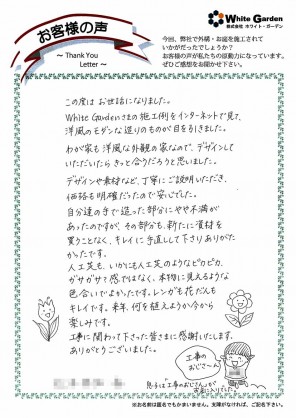 お客様の声
～ Thank You
Letter ～
White Garden
株式会社 ホワイト・ガーデン
今回、弊社で外構・お庭を施工されて
いかがだったでしょうか？
お客様の声が私たちの原動力になっています。
ぜひご感想をお聞かせ下さい。
この度は お世話になりました。
White Gardenさまの施工例をインターネットで見て、
洋風のモダンな造りのものが目を引きました。
わが家も 洋風な外観の家なので、デザインして
いただいたら きっと合うだろうと思いました。
デザインや素材など、丁寧にご説明いただき、
価格も明確だったので安心でした。
自分達の手で造った部分にやや不満が
あったのですが、その部分も、新たに資材を
買うことなく、キレイに手直しして下さりありがた
かったです。
人工芝も、いかにも人工芝のようなピカピカ、
ガサガサ？感ではなく、本物に見えるような
色合いでよかったです。レンガも花だんも
キレイです。来年、何を植えようか今から
楽しみです。
工事に関わって下さった皆さまに感謝いたします。
ありがとうございました。
工事の
おじさ～ん
息子は工事のおじさんが
お気に入りでした。
※お名前は匿名でもかまいません。ご支障があれば、ご記名下さい。